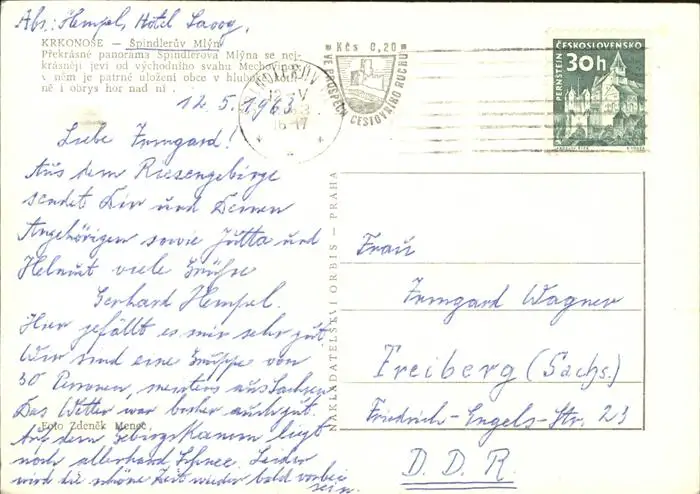 Abs: Hempel, Hotel Savoy
KRKONOŠE — Špindlerův Mlýn
Překrásné panorama Špindlerova Mlýna se nej-
krásněji jeví od východního svahu
v něm je patrné uložení obce v
ně i obrys hor nad ní
12.5.1963
Liebe Irmgard!
Aus dem Riesengebirge
sendet Dir und Deinen
Angehörigen sowie Jutta und
Helmut viele Grüße
Gerhard Hempel.
Hier gefällt es mir sehr gut.
Wir sind eine Gruppe von
30 Personen, meistens aus Sachsen.
Das Wetter war bisher auch gut.
Foto Zdeněk
Auf dem Gebirgskamm liegt
noch allerhand Schnee. Leider
wird die schöne Zeit wieder bald vorbei
sein.
12. V
16-17
Kčs 0,20
VE PROSPĚCH CESTOVNÍHO RUCHU
ČESKOSLOVENSKO
PERNŠTEJN
30h
NAKLADATELSTVÍ ORBIS — PRAHA
Frau
Irmgard Wagner
Freiberg (Sachs.)
Friedrich-Engels-Str. 23
D. D. R.